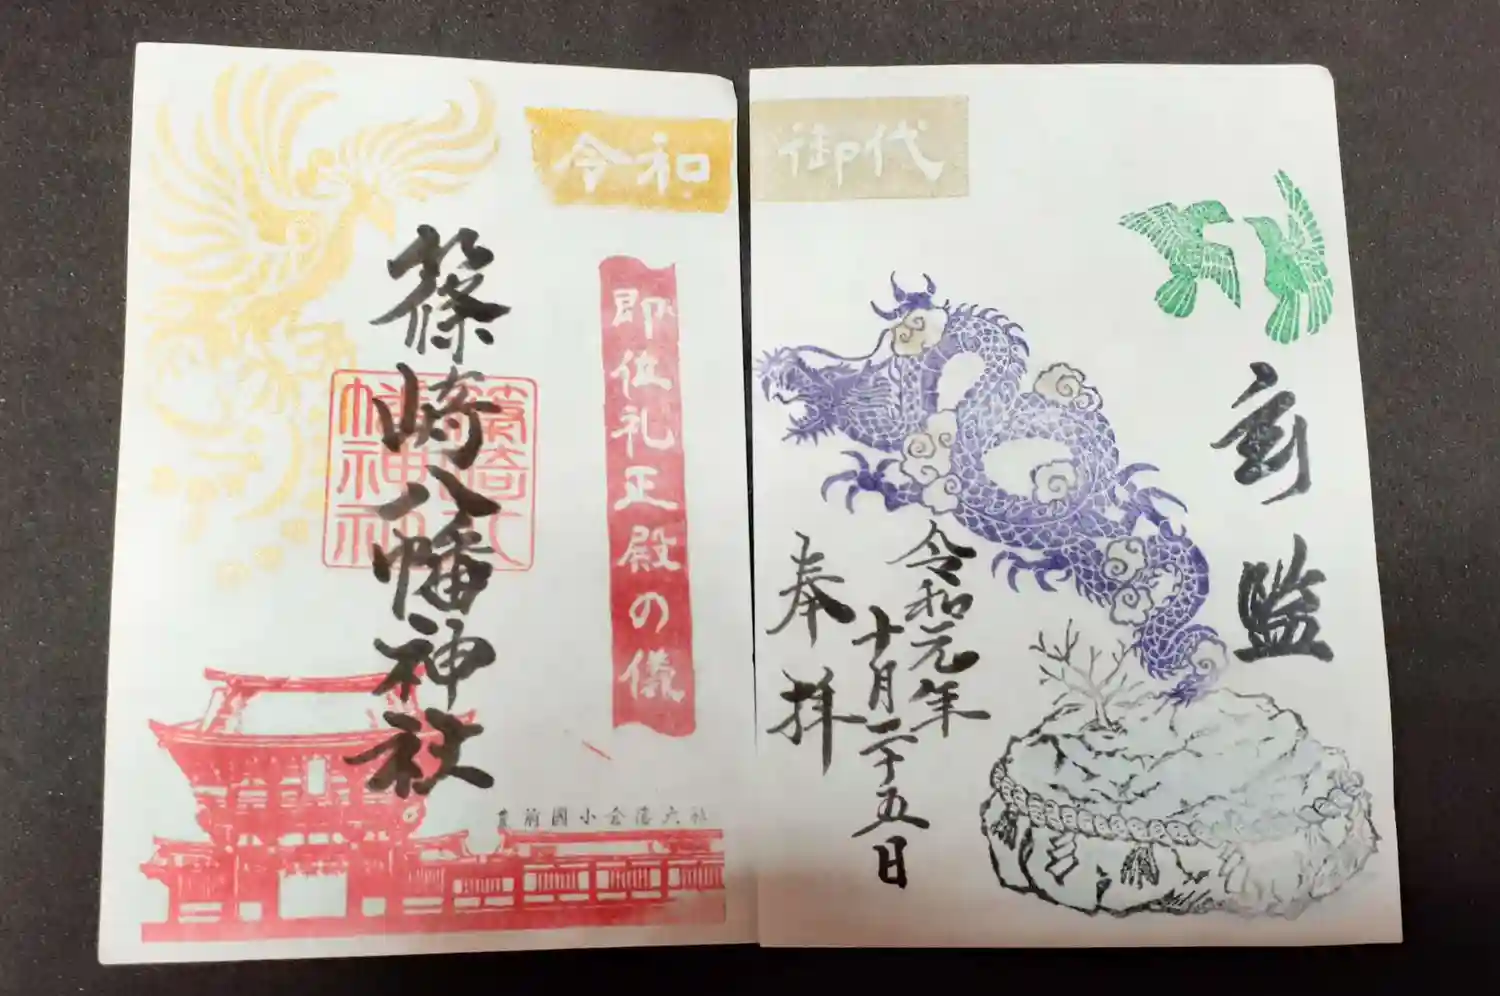 御代
令和
奉拝
令和元年
十月二十五日
即位礼正殿の儀
篠崎八幡神社
篠崎八
幡神社
豊前國小倉藩六社